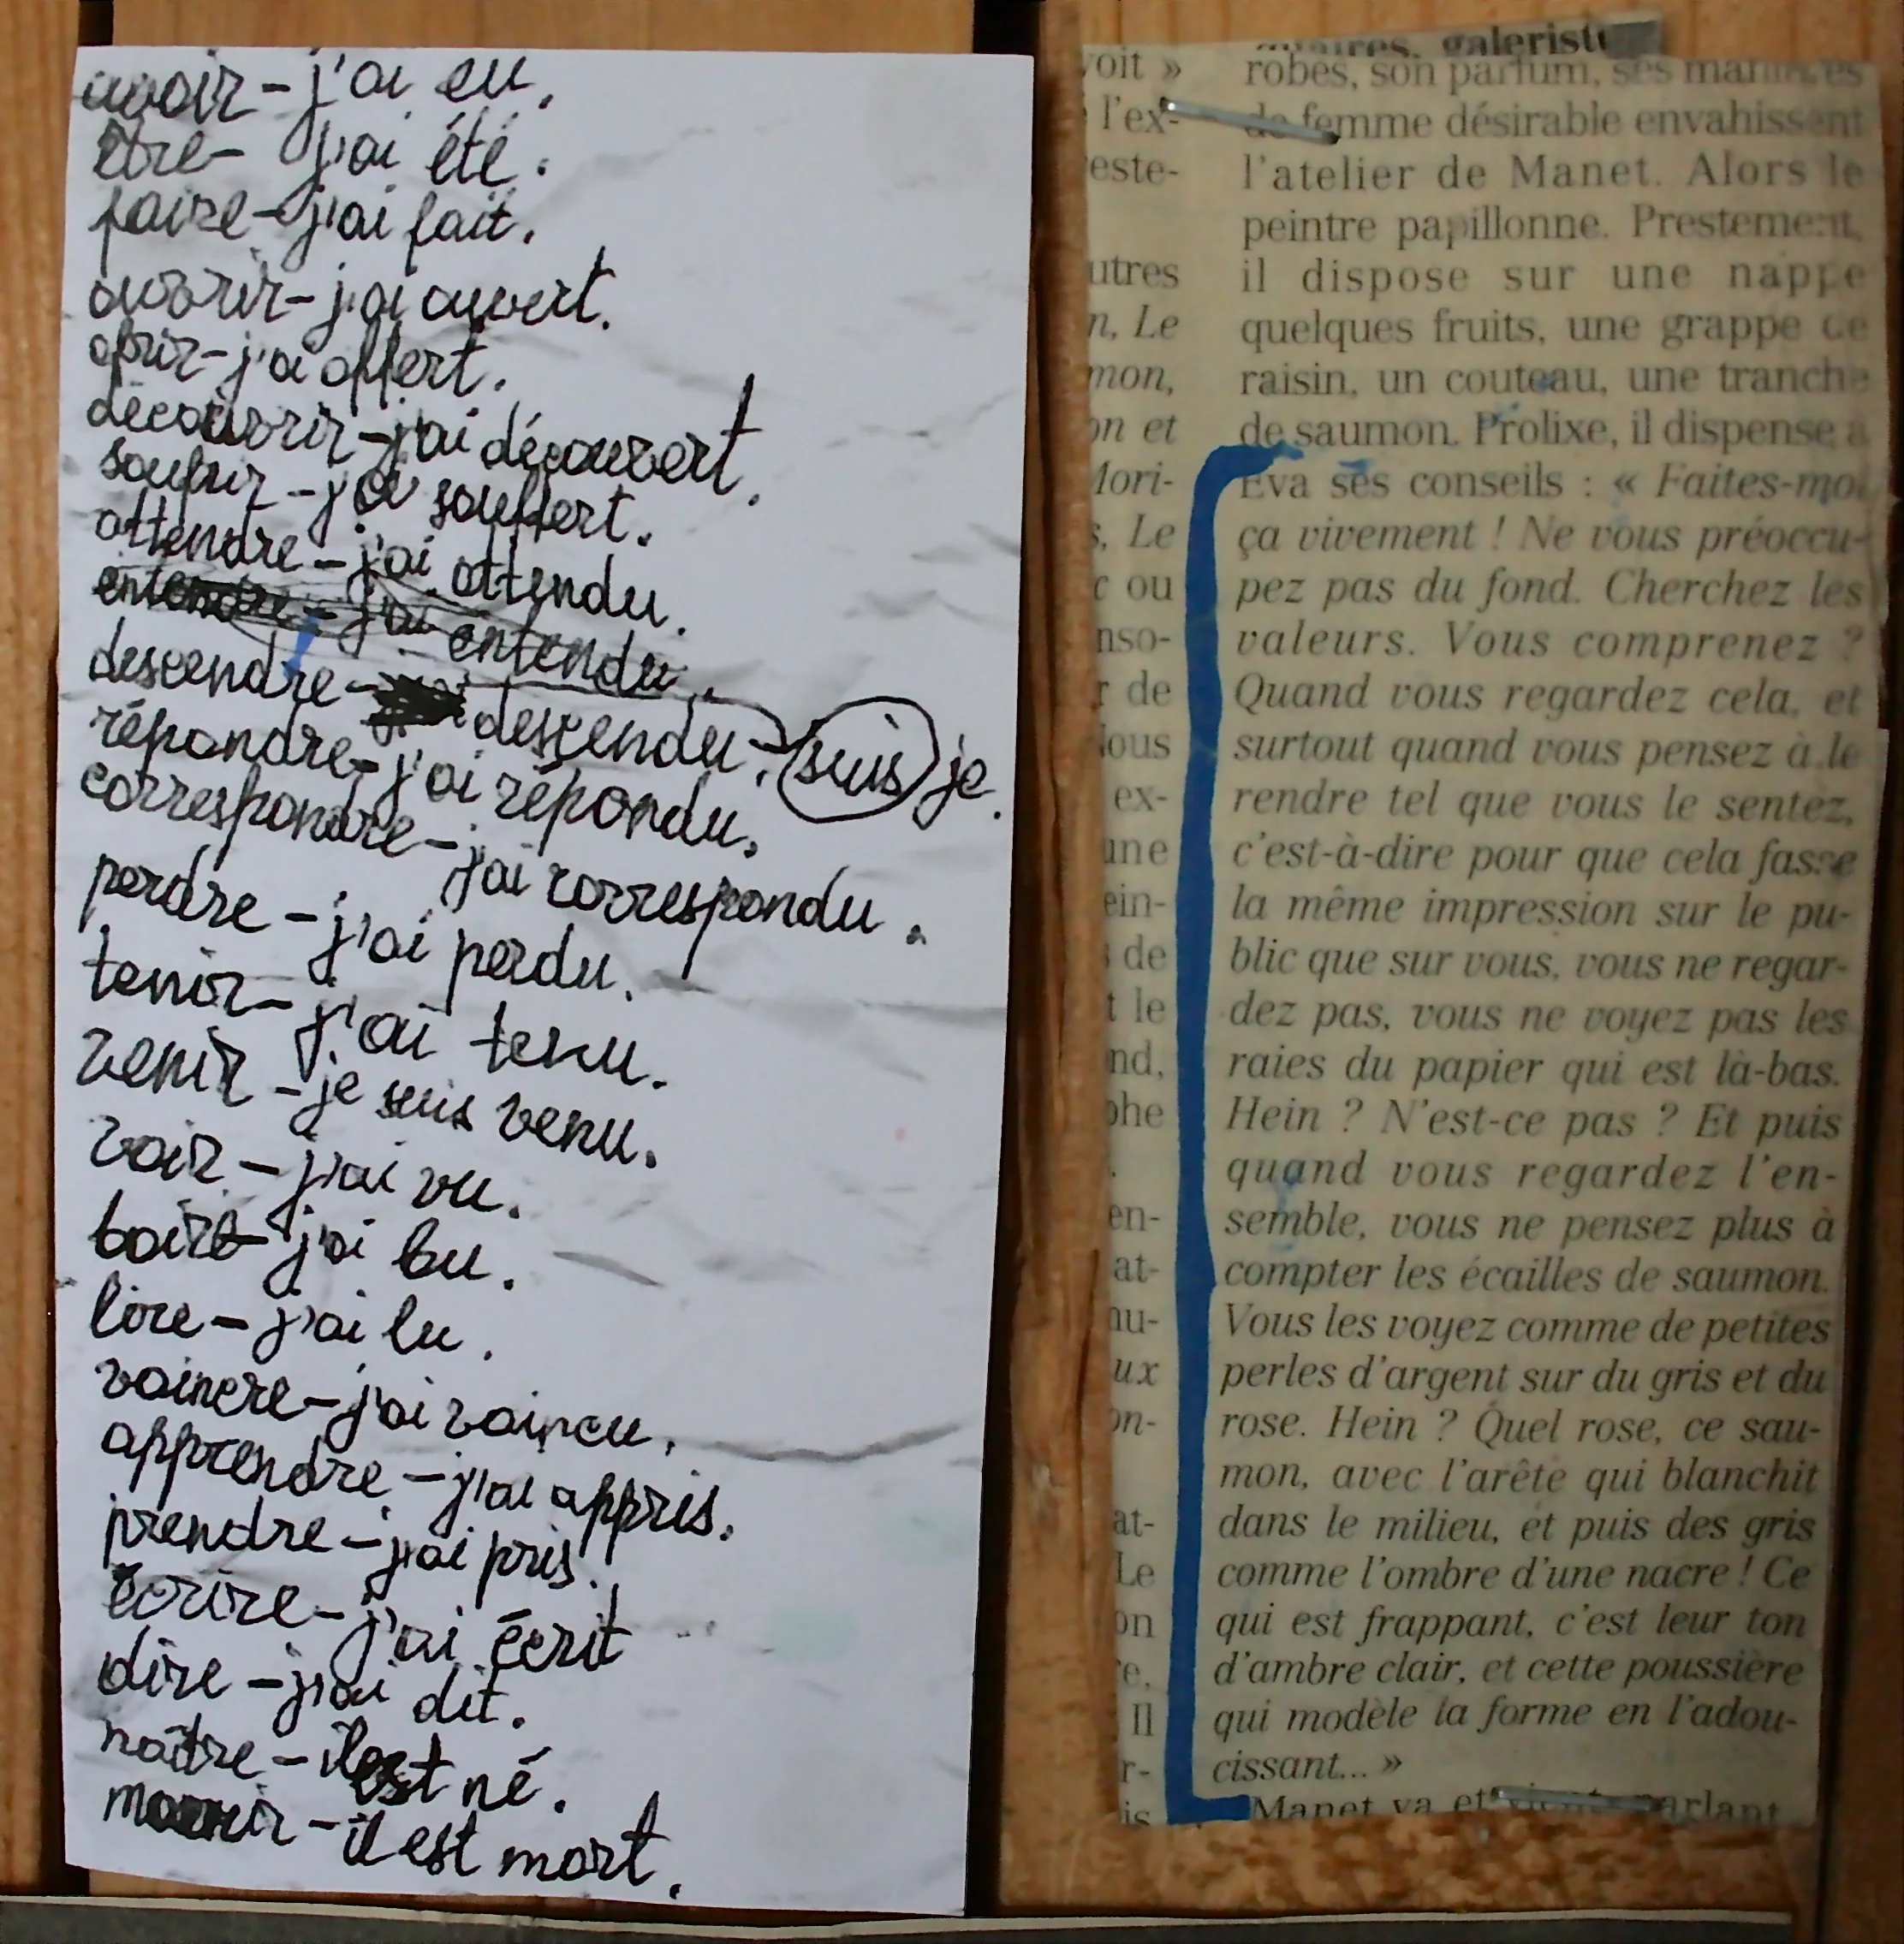 avoir - j'ai eu.
être - j'ai été.
faire - j'ai fait.
ouvrir - j'ai ouvert.
ofrir - j'ai offert.
découvrir - j'ai découvert.
soufrir - j'ai souffert.
attendre - j'ai attendu.
entendre - j'ai entendu.
descendre - descendu. suis je.
répondre - j'ai répondu.
correspondre - j'ai correspondu.
perdre - j'ai perdu.
tenir - j'ai tenu.
venir - je suis venu.
voir - j'ai vu.
boire - j'ai bu.
lire - j'ai lu.
vaincre - j'ai vaincu.
apprendre - j'ai appris.
prendre - j'ai pris.
écrire - j'ai écrit
dire - j'ai dit.
naître - il est né.
mourir - il est mort.
voit »
l'ex-
este-
utres
n, Le
mon,
on et
Mori-
s, Le
c ou
nso-
r de
Nous
ex-
une
ein-
de
t le
nd,
phe
en-
at-
nu-
ux
on-
at-
Le
on
re,
Il
r-
is
galeriste
robes, son parfum, ses manières
de femme désirable envahissent
l'atelier de Manet. Alors le
peintre papillonne. Prestement,
il dispose sur une nappe
quelques fruits, une grappe de
raisin, un couteau, une tranche
de saumon. Prolixe, il dispense à
Eva ses conseils : « Faites-moi
ça vivement ! Ne vous préoccu-
pez pas du fond. Cherchez les
valeurs. Vous comprenez ?
Quand vous regardez cela, et
surtout quand vous pensez à le
rendre tel que vous le sentez,
c'est-à-dire pour que cela fasse
la même impression sur le pu-
blic que sur vous, vous ne regar-
dez pas, vous ne voyez pas les
raies du papier qui est là-bas.
Hein ? N'est-ce pas ? Et puis
quand vous regardez l'en-
semble, vous ne pensez plus à
compter les écailles de saumon.
Vous les voyez comme de petites
perles d'argent sur du gris et du
rose. Hein ? Quel rose, ce sau-
mon, avec l'arête qui blanchit
dans le milieu, et puis des gris
comme l'ombre d'une nacre ! Ce
qui est frappant, c'est leur ton
d'ambre clair, et cette poussière
qui modèle la forme en l'adou-
cissant... »
Manet va et vient, parlant